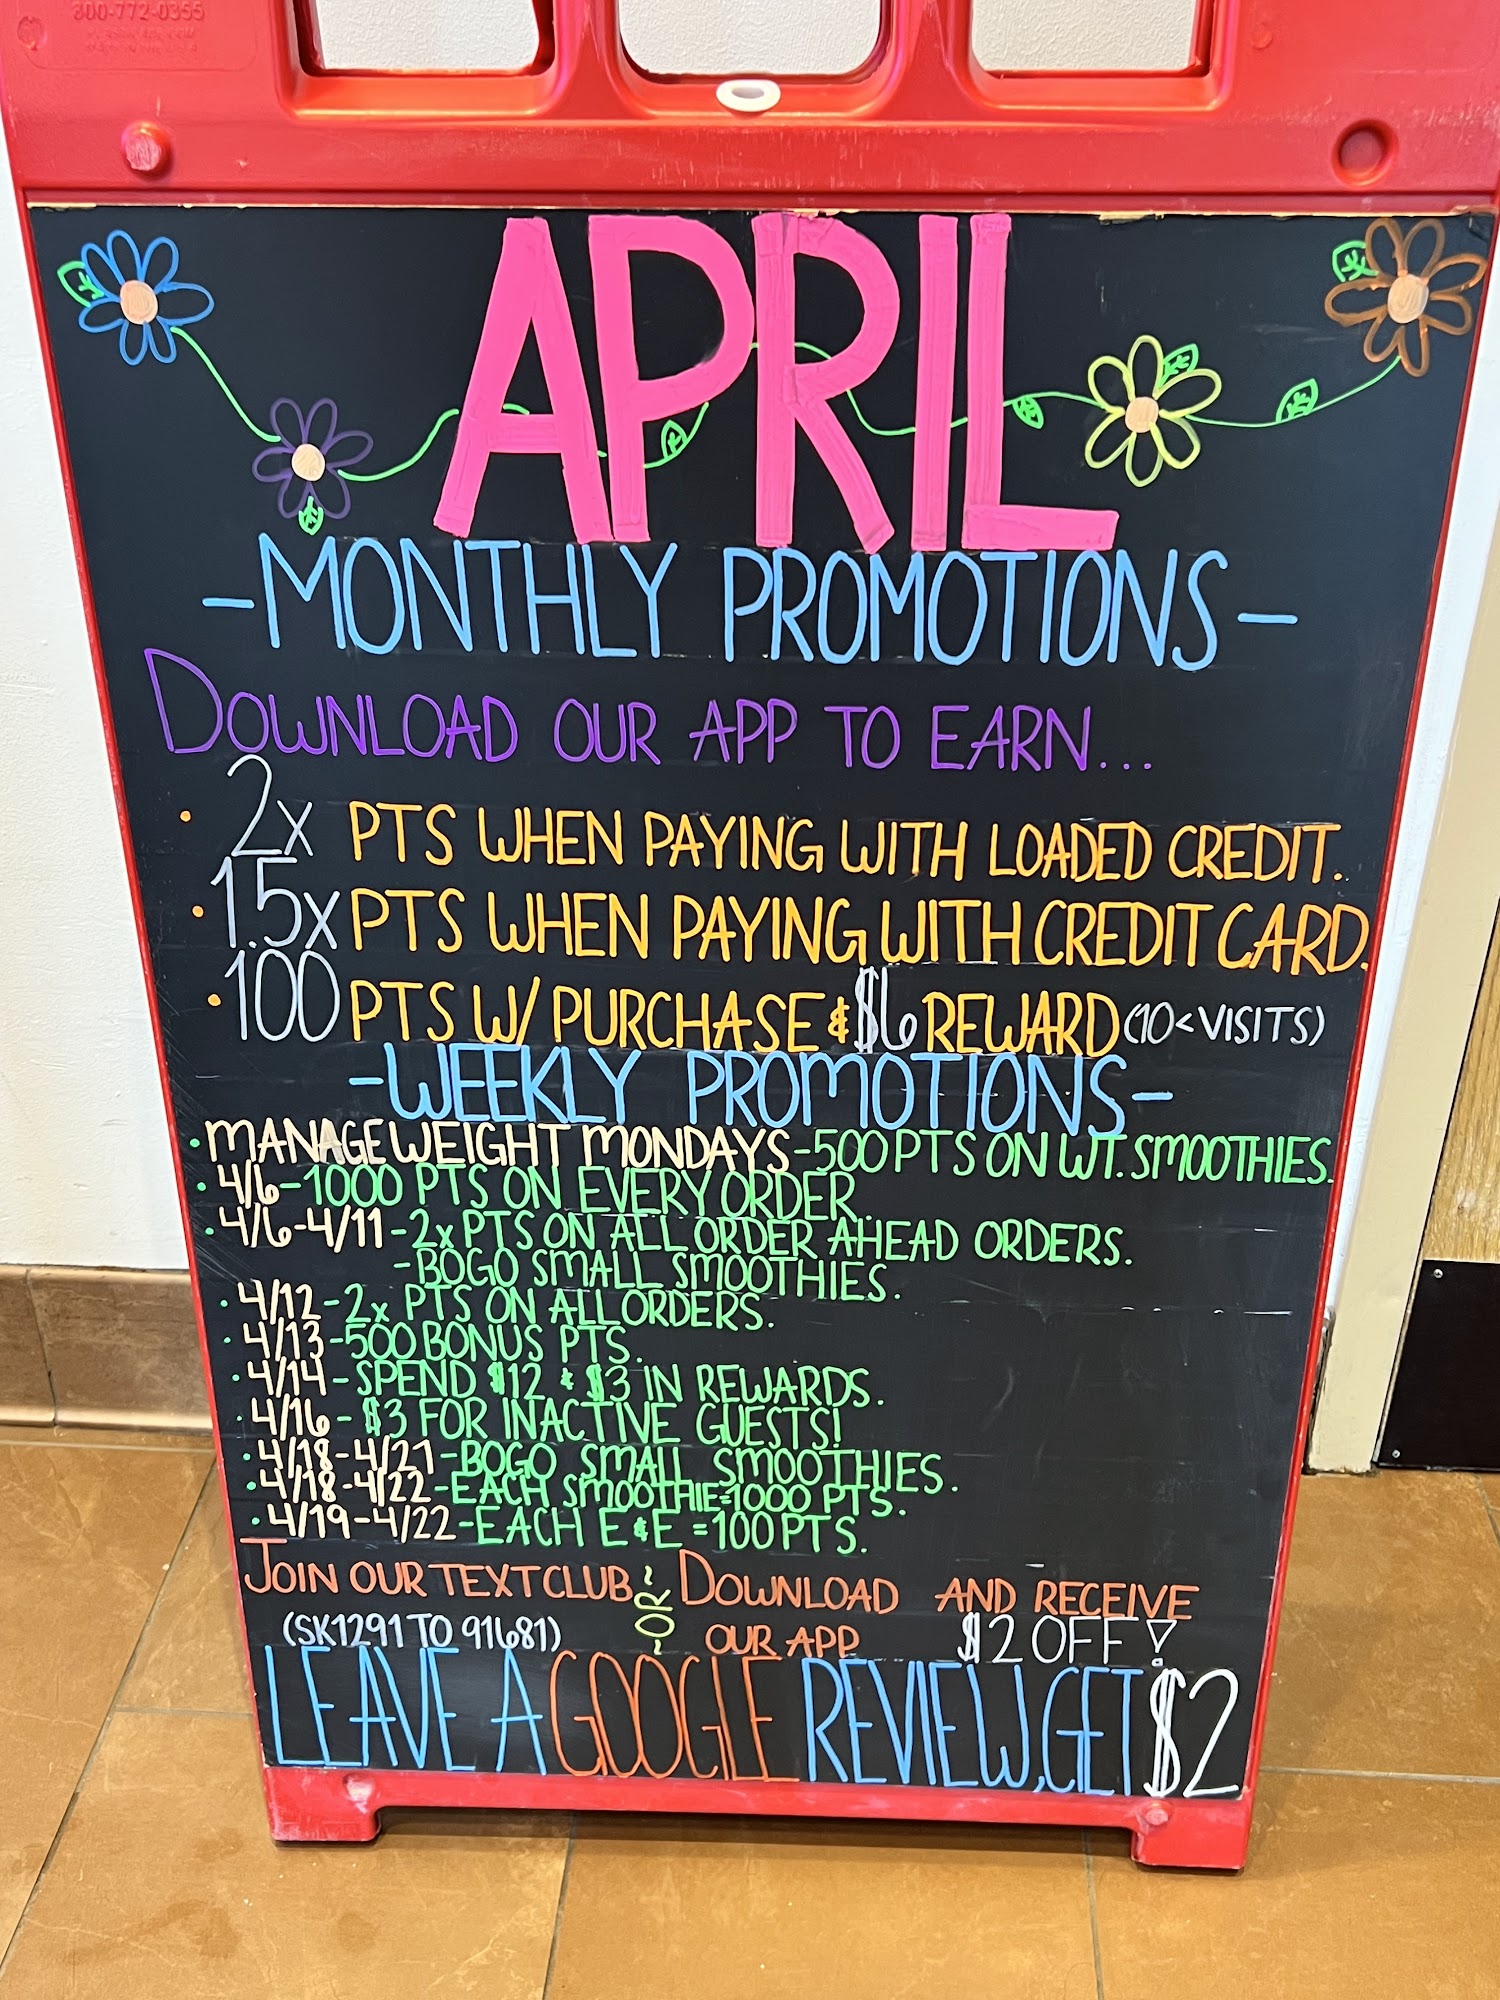 800-772-0355
APRIL
-MONTHLY PROMOTIONS-
DOWNLOAD OUR APP TO EARN...
• 2x PTS WHEN PAYING WITH LOADED CREDIT.
• 1.5x PTS WHEN PAYING WITH CREDIT CARD.
• 100 PTS W/ PURCHASE & $6 REWARD (10<VISITS)
-WEEKLY PROMOTIONS-
• MANAGE WEIGHT MONDAYS-500 PTS ON WT. SMOOTHIES.
• 4/6-1000 PTS ON EVERY ORDER.
• 4/6-4/11-2x PTS ON ALL ORDER AHEAD ORDERS.
-BOGO SMALL SMOOTHIES.
• 4/12-2x PTS ON ALL ORDERS.
• 4/13-500 BONUS PTS.
• 4/14-SPEND $12 & $3 IN REWARDS.
• 4/16-$3 FOR INACTIVE GUESTS!
• 4/18-4/21-BOGO SMALL SMOOTHIES.
• 4/18-4/22-EACH SMOOTHIE=1000 PTS.
• 4/19-4/22-EACH E&E =100 PTS.
JOIN OUR TEXT CLUB ~OR~ DOWNLOAD AND RECEIVE
(SK1291 TO 91681) OUR APP $2 OFF!
LEAVE A GOOGLE REVIEW, GET $2